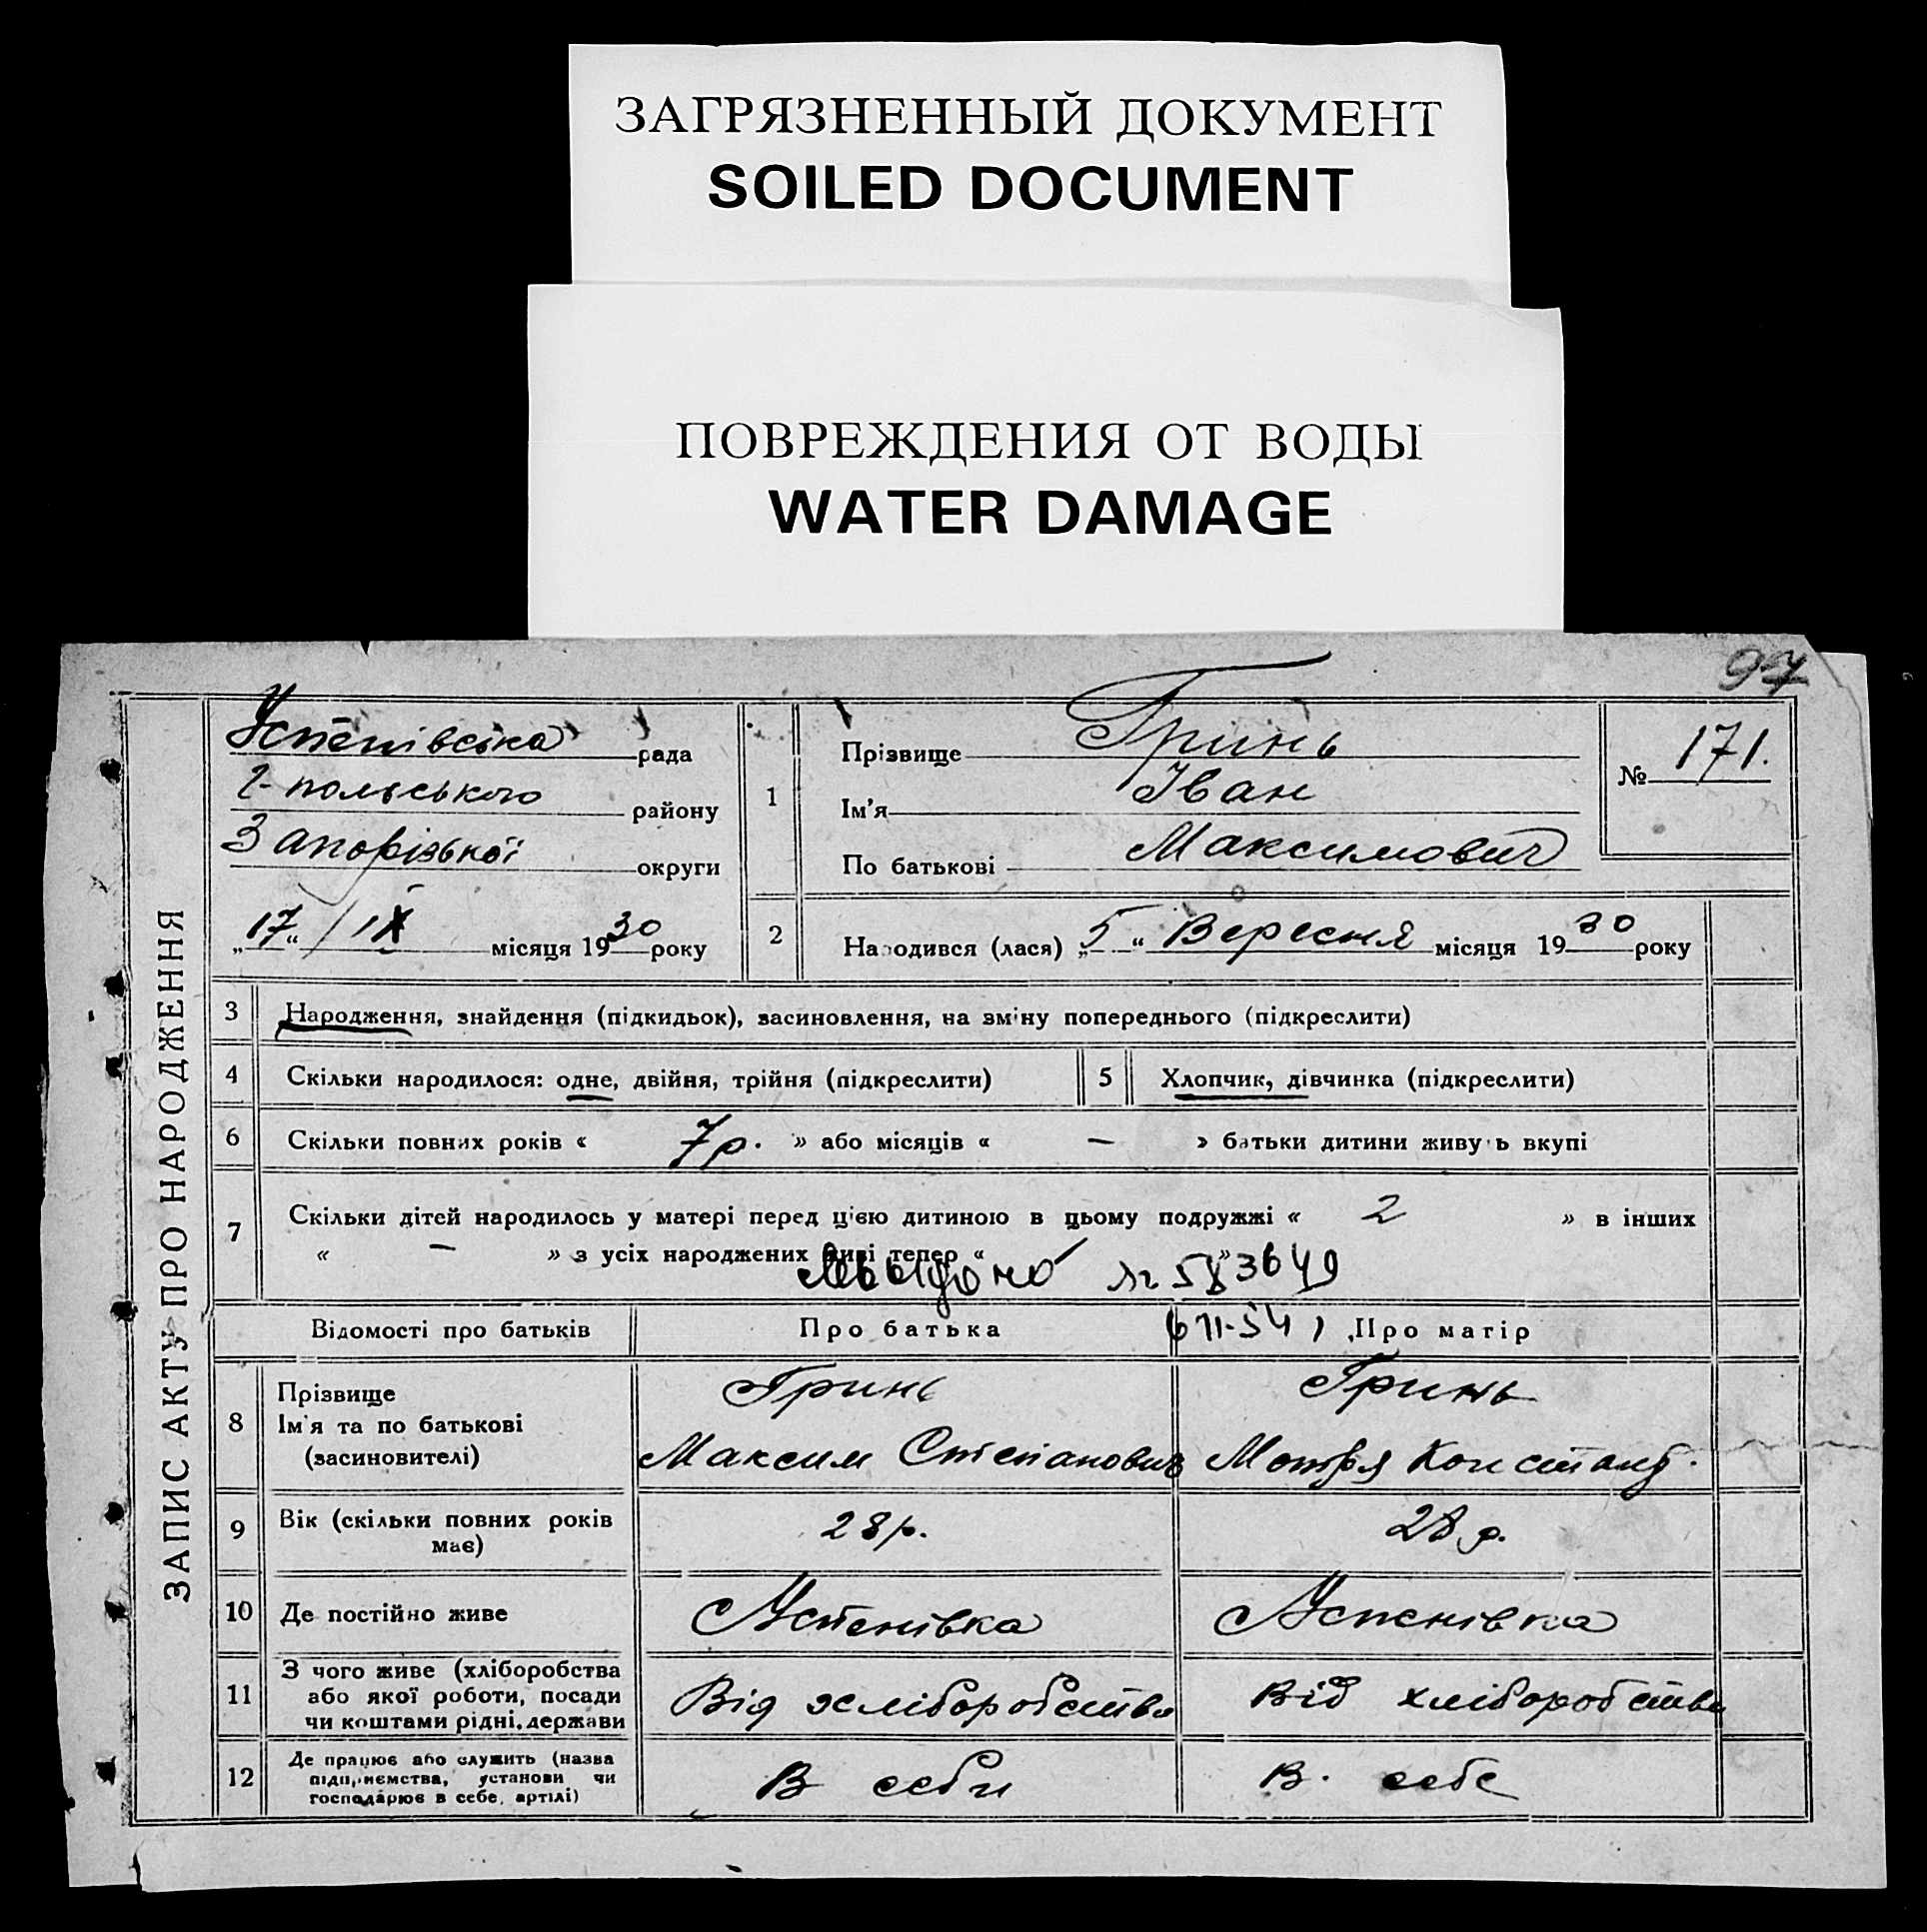 ЗАГРЯЗНЕННЫЙ ДОКУМЕНТ
SOILED DOCUMENT
ПОВРЕЖДЕНИЯ ОТ ВОДЫ
WATER DAMAGE
97
ЗАПИС АКТУ ПРО НАРОДЖЕННЯ
Успенівська рада
Г-польського району
Запорізької округи
„17“ / IX місяця 1930 року
1
Прізвище Гринь
Ім'я Іван
По батькові Максимович
№ 171.
2 Народився (лася) „5“ Вересня місяця 1930 року
3 Народження, знайдення (підкидьок), засиновлення, на зміну попереднього (підкреслити)
4 Скільки народилося: одне, двійня, трійня (підкреслити)
5 Хлопчик, дівчинка (підкреслити)
6 Скільки повних років « 7 р. » або місяців « — » батьки дитини живуть вкупі
7 Скільки дітей народилось у матері перед цією дитиною в цьому подружжі « 2 » в інших
« — » з усіх народжених живі тепер « »
583649
Відомості про батьків Про батька Про матір
8 Прізвище
Ім'я та по батькові
(засиновителі)
Гринь
Максим Степанович
Гринь
Мотря Констант.
9 Вік (скільки повних років має) 28 р. 28 р.
10 Де постійно живе Успенівка Успенівка
11 З чого живе (хліборобства
або якої роботи, посади
чи коштами рідні, держави
Від хліборобства Від хліборобства
12 Де працює або служить (назва
підприємства, установи чи
господарює в себе, артілі)
В себи В. себе